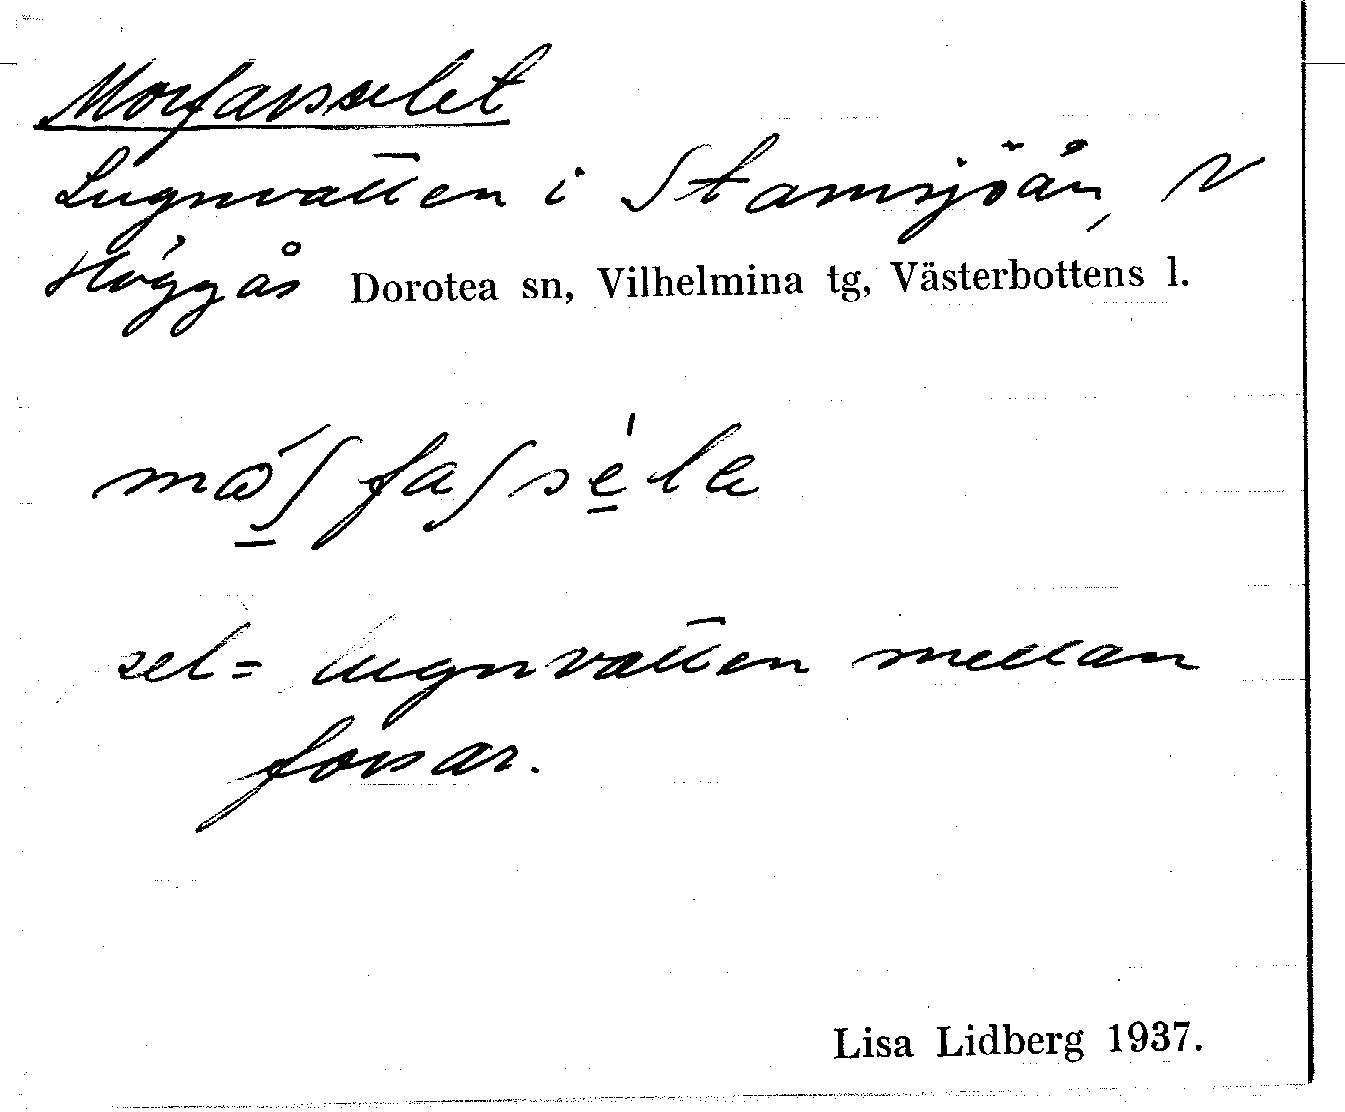 Morfarsselet
Lugnvatten i Stamsjöån, V
Höggås Dorotea sn, Vilhelmina tg, Västerbottens l.
sel = lugnvatten mellan
forsar.
Lisa Lidberg 1937.